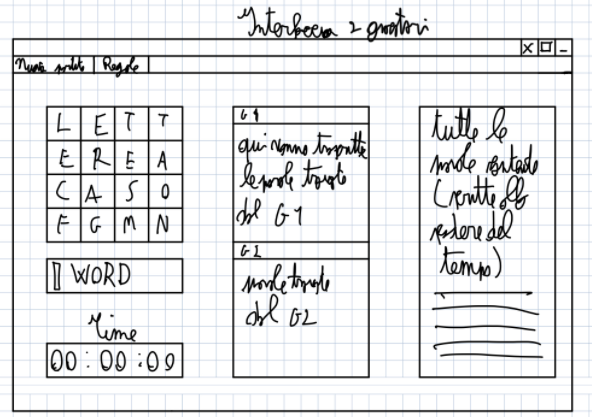 Interfaccia 2 giocatori
X
Nuova partita | Regole
L E T T
E R E A
C A S O
F G M N
WORD
Time
00:00:00
G1
qui vanno trascritte
le parole trovate
dal G1
G2
parole trovate
dal G2
tutte le
parole esistenti
(scritte allo
scadere del
tempo)